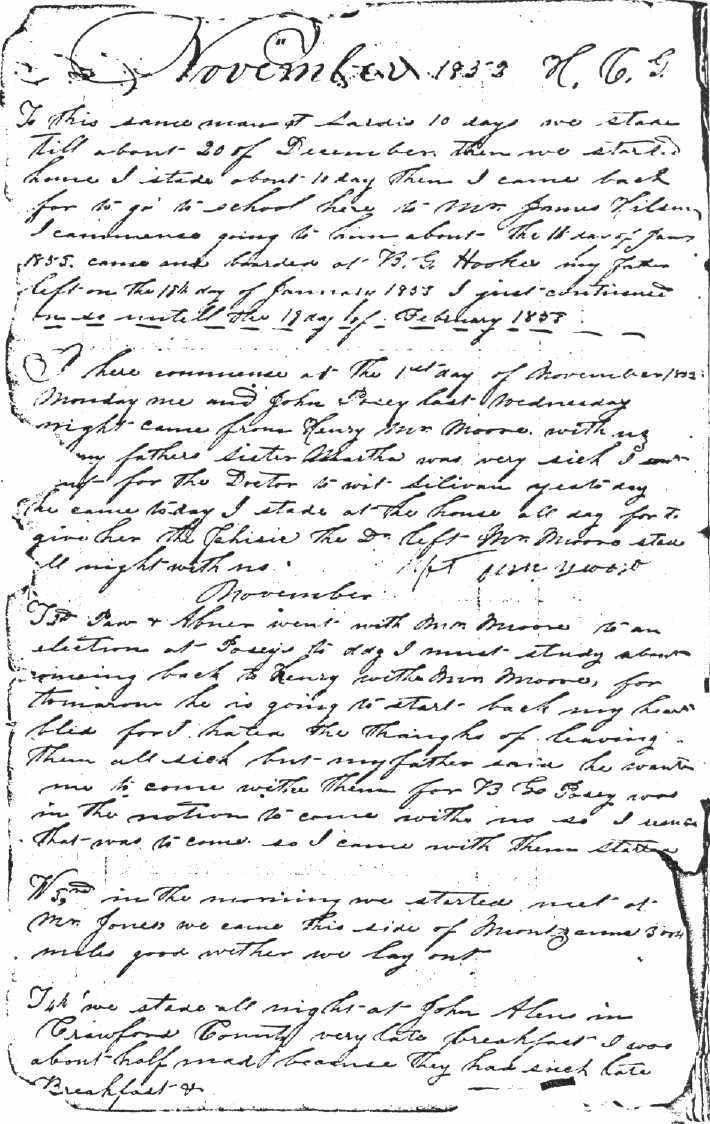 November 1853 H. T. G.
To this same man at Sardis 10 days we stade
till about 20 of December then we started
home I stade about 10 day then I came back
for to go to school here to Mr. James Wilson
I commense going to him about the 18 day of Jan
1853. came and boarded at B. G. Hooke my father
left on the 18th day of January 1853 I just continued
on so untill the 19 day of February 1853
I here commense at the 1st day of November 1853
Monday me and John Posey last Wednesday
night came from Henry Mr. Moore with us
my fathers sister Martha was very sick I
for the Doctor to wit Silivan yestoday
he came today I stade at the house all day for to
give her the Phisic the Dr. left Mr. Moore stade
all night with us.
November
T Paw & Abner went with Mr. Moore to an
election at Poseys to day I must study about
comeing back to Henry withe Mr. Moore, for
tomarow he is going to start back my heart
bled for I hated the thaughs of leaving
them all sick but my father said he wants
me to come withe them for B G Posey was
in the notion to come withe us so I
that was to come. so I came with them stated
W in the morning we started met at
Mr. Jones we came this side of Montzauma 3 or 4
miles good wether we lay out
T 4th we stade all night at John Alens in
Crawford County very late breakfast I was
about half mad because they had such late
Breakfast &